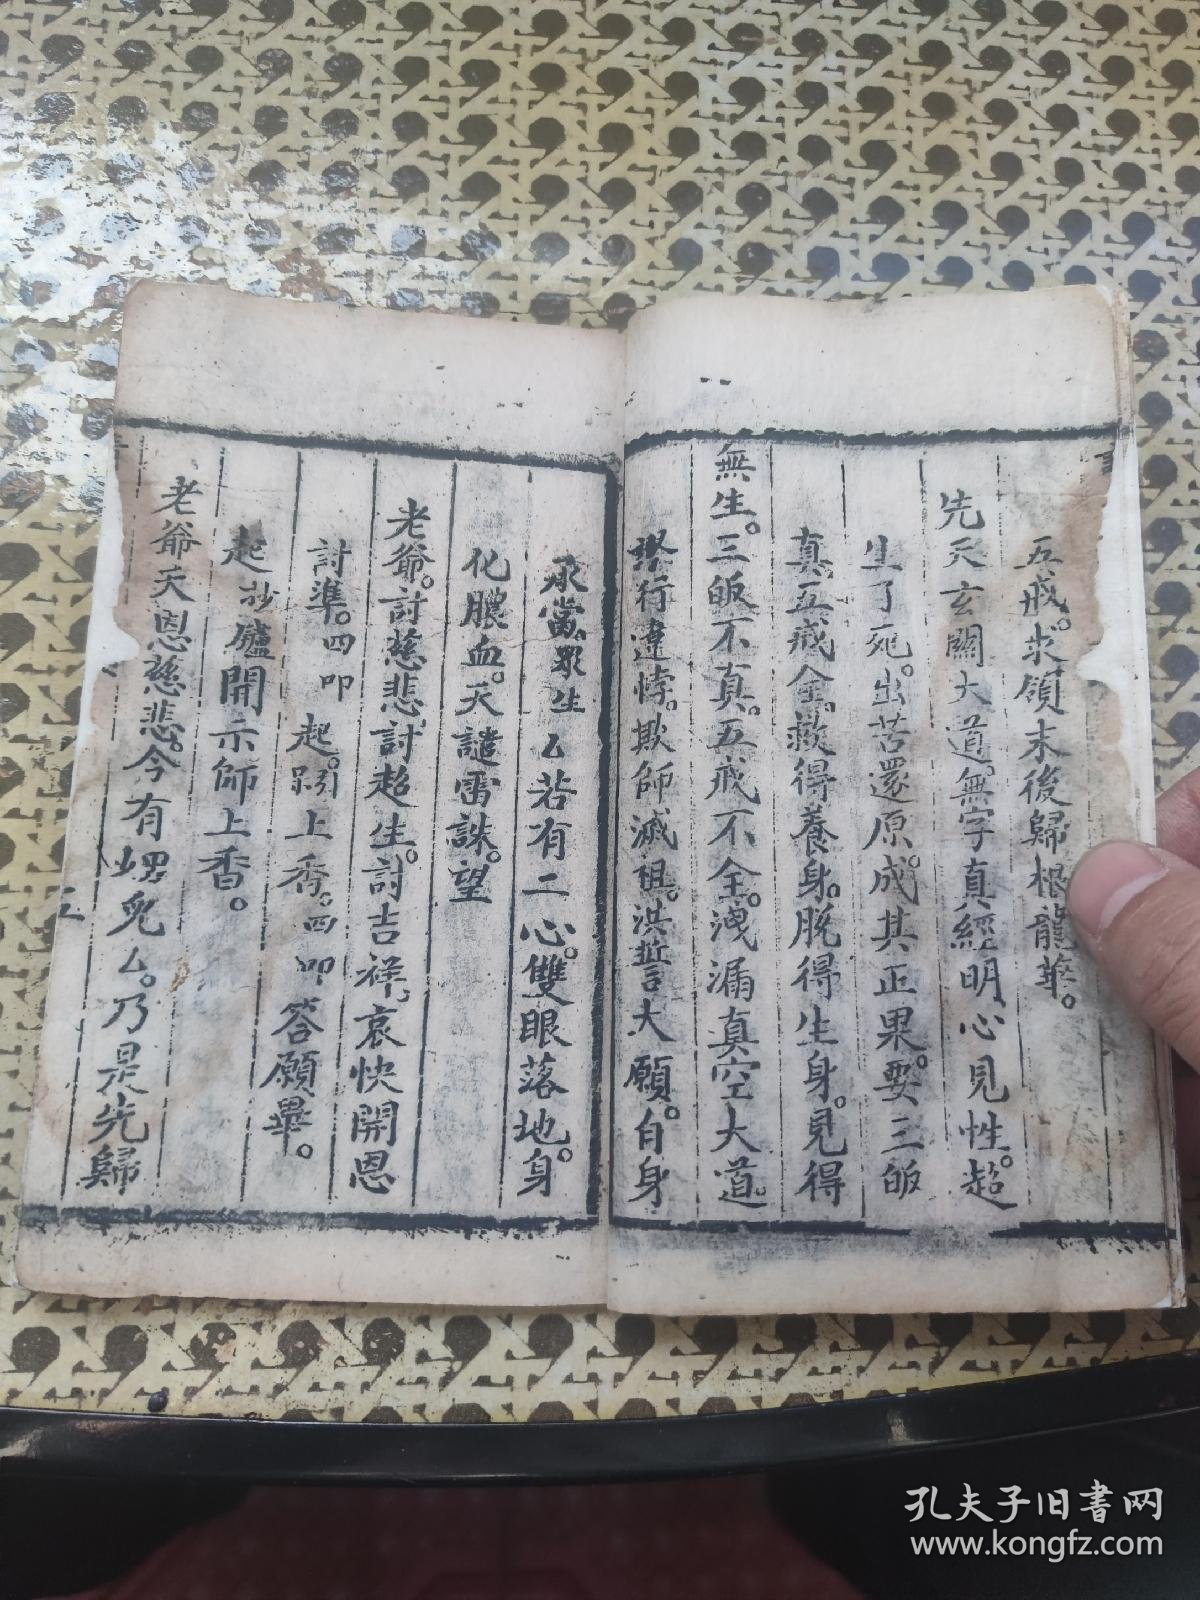 五戒。求領末後歸根龍華。
先天玄關大道。無字真經明心見性。超
生了死。出苦還原。成其正果。要三皈
真。五戒全。救得養身。脫得生身。見得
無生。三皈不真。五戒不全。洩漏真空大道。
行違悖。欺師滅祖。洪誓大願。自身
承當。眾生 么若有二心。雙眼落地。身
化膿血。天譴雷誅。望
老爺。討慈悲。討超生。討吉祥。哀快開恩
討準。四叩 起。躬上香。四叩 答願畢。
起抄爐開示師上香。
老爺天恩慈悲。今有 兒么。乃是先歸
五
孔夫子旧書网
www.kongfz.com